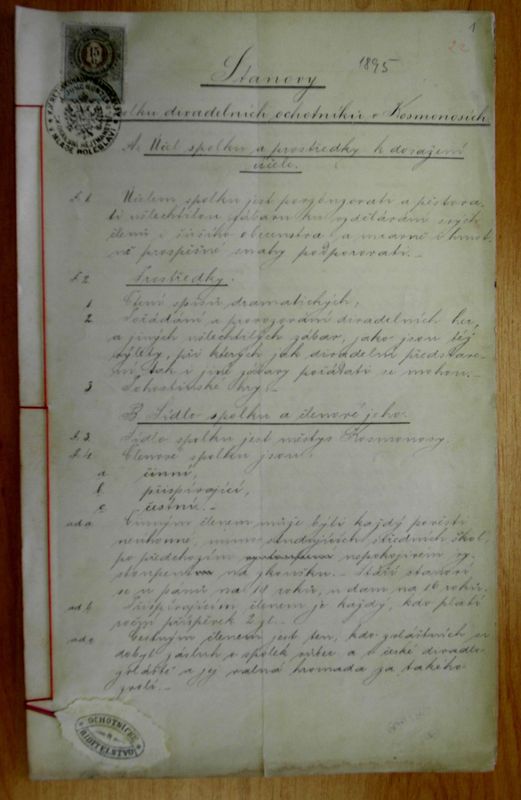 1
22
1895
Stanovy
spolku divadelních ochotníků v Kosmonosích
A. Účel spolku a prostředky k dosažení
účele.
§. 1. Účelem spolku jest porozorovati a pěstova-
ti ušlechtilou zábavu ku vzdělávání svých
členů i širšího obecenstva a mravně i hmot-
ně prospěšné snahy podporovati.-
§. 2. Prostředky.
1. Čtení spisů dramatických,
2. Pořádání a provozování divadelních her,
a jiných ušlechtilých zábav, jako jsou též
výlety, při kterých jak divadelní představe-
ní tak i jiné zábavy pořádati se mohou.-
3 Pohostinské hry.-
B. Sídlo spolku a členové jeho.
§. 3. Sídlo spolku jest městys Kosmonosy.
§. 4. Členové spolku jsou:
a činní,
b přispívající,
c čestní.-
ad a Činným členem může býti každý pověsti
neúhonné, mimo studujících středních škol,
po předchozím nepokojivém vy-
stoupení na zkoušku. - Stáří stanoví
se u pánů na 19 roků, u dam na 16 roků.
ad b Přispívajícím členem je každý, kdo platí
roční příspěvek 2 zl.-
ad c Čestným členem jest ten, kdo zvláštních si
dobyl zásluh o spolek vůbec a o české divadlo
zvláště a jej valná hromada za takého
zvolí.-
15
OCHOTNICKÉ
ŘIDITELSTVO